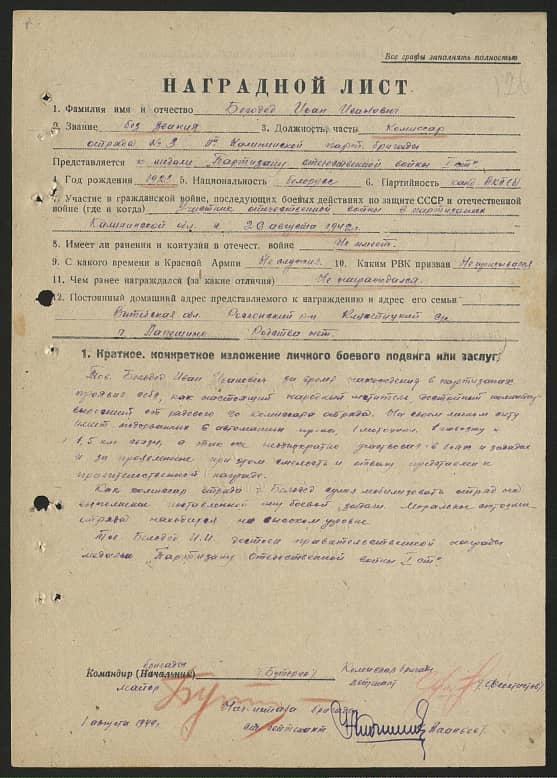 Все графы заполнять полностью
126
НАГРАДНОЙ ЛИСТ
1. Фамилия имя и отчество Белодед Иван Иванович
2. Звание без звания 3. Должность, часть Комиссар
отряда № 3 Калининской парт. бригады
Представляется к медали "Партизану отечественной войны I ст"
4. Год рождения 1921 5. Национальность белорус 6. Партийность канд ВКП(б)
7. Участие в гражданской войне, последующих боевых действиях по защите СССР и отечественной
войне (где и когда) Участник отечественной войны в партизанах
Калининской обл. с 20 августа 1942г.
8. Имеет ли ранения и контузии в отечест. войне Не имеет.
9. С какого времени в Красной Армии Не служил. 10. Каким РВК призван Не призывался
11. Чем ранее награждался (за какие отличия) Не награждался.
12. Постоянный домашний адрес представляемого к награждению и адрес его семьи
Витебская обл. Россонский р-н Клястицкий с/с
Родства нет.
1. Краткое, конкретное изложение личного боевого подвига или заслуг
Тов. Белодед Иван Иванович за время нахождения в партизанах
проявил себя, как настоящий народный мститель, достойный
выросший от рядового до комиссара отряда. На своем личном счету
имеет подорванных 6 автомашин пр-ка, 1 мотоцикл,
1,5 км связи, а так же неоднократно участвовал в боях и засадах
и за проявленные при этом смелость и отвагу представлен к
правительственной награде.
Как комиссар отряда т. Белодед сумел мобилизовать отряд на
выполнение поставленной ему боевой задачи. Моральное состояние
отряда находится на высоком уровне
Тов Белодед И.И. достоин правительственной награды
медалью "Партизану Отечественной войны I ст."
Командир (Начальник) бригады
майор
Комиссар бригады
Нач. штаба бригады
1 августа 1944г.